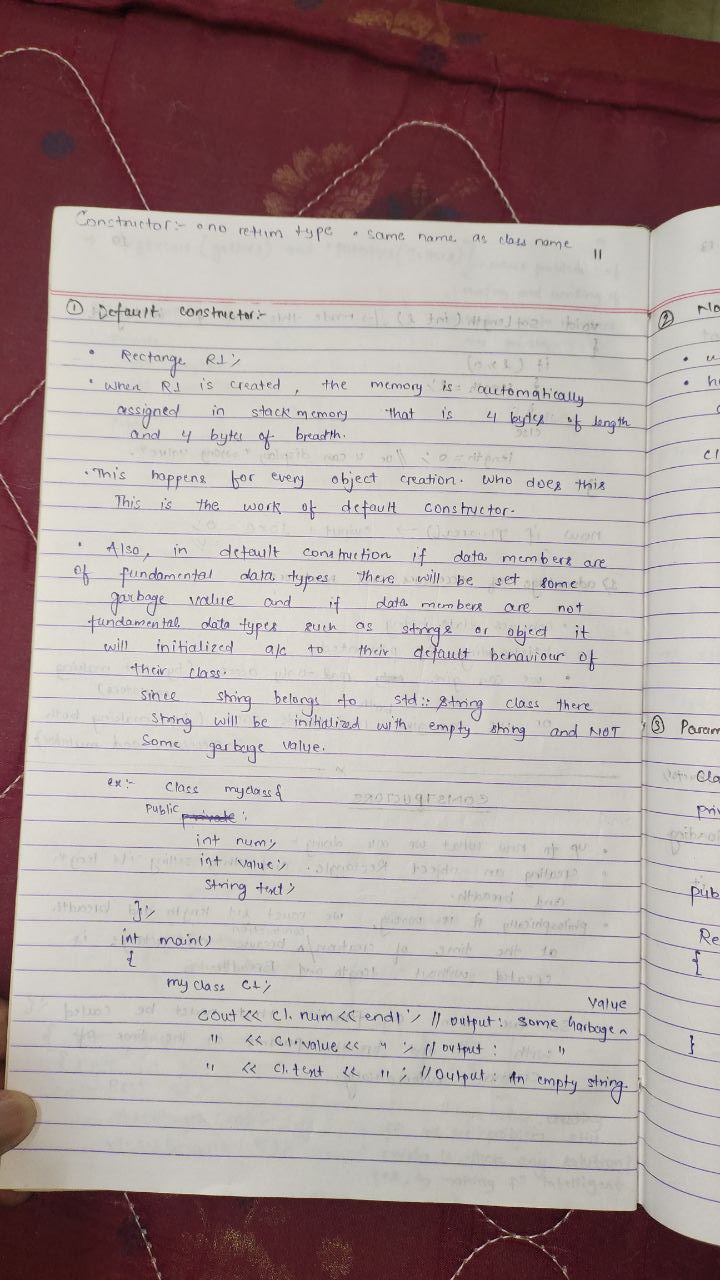 Constructor:- • no return type • same name as class name
11
① Default constructor:-
• Rectange R1;
• when R1 is created, the memory is automatically
assigned in stack memory that is 4 bytes of length
and 4 bytes of breadth.
• This happens for every object creation. who does this
This is the work of default constructor.
• Also, in default construction if data members are
of fundamental data types there will be set some
garbage value and if data members are not
fundamental data types such as strings or object it
will initialized a/c to their default behaviour of
their class.
since string belongs to std::string class there
string will be initialized with empty string and NOT
some garbage value.
ex:- Class myclass{
Public private:
int num;
int value;
string text;
};
int main()
{
myclass C1;
cout<< C1.num<<endl; // output: some Garbage ^ value
" << C1.value << " ; // output : "
" << C1.text << " ; // Output: An empty string.
②
No
•
•
cl
③ Param
Cla
pri
pub
Re
{
}